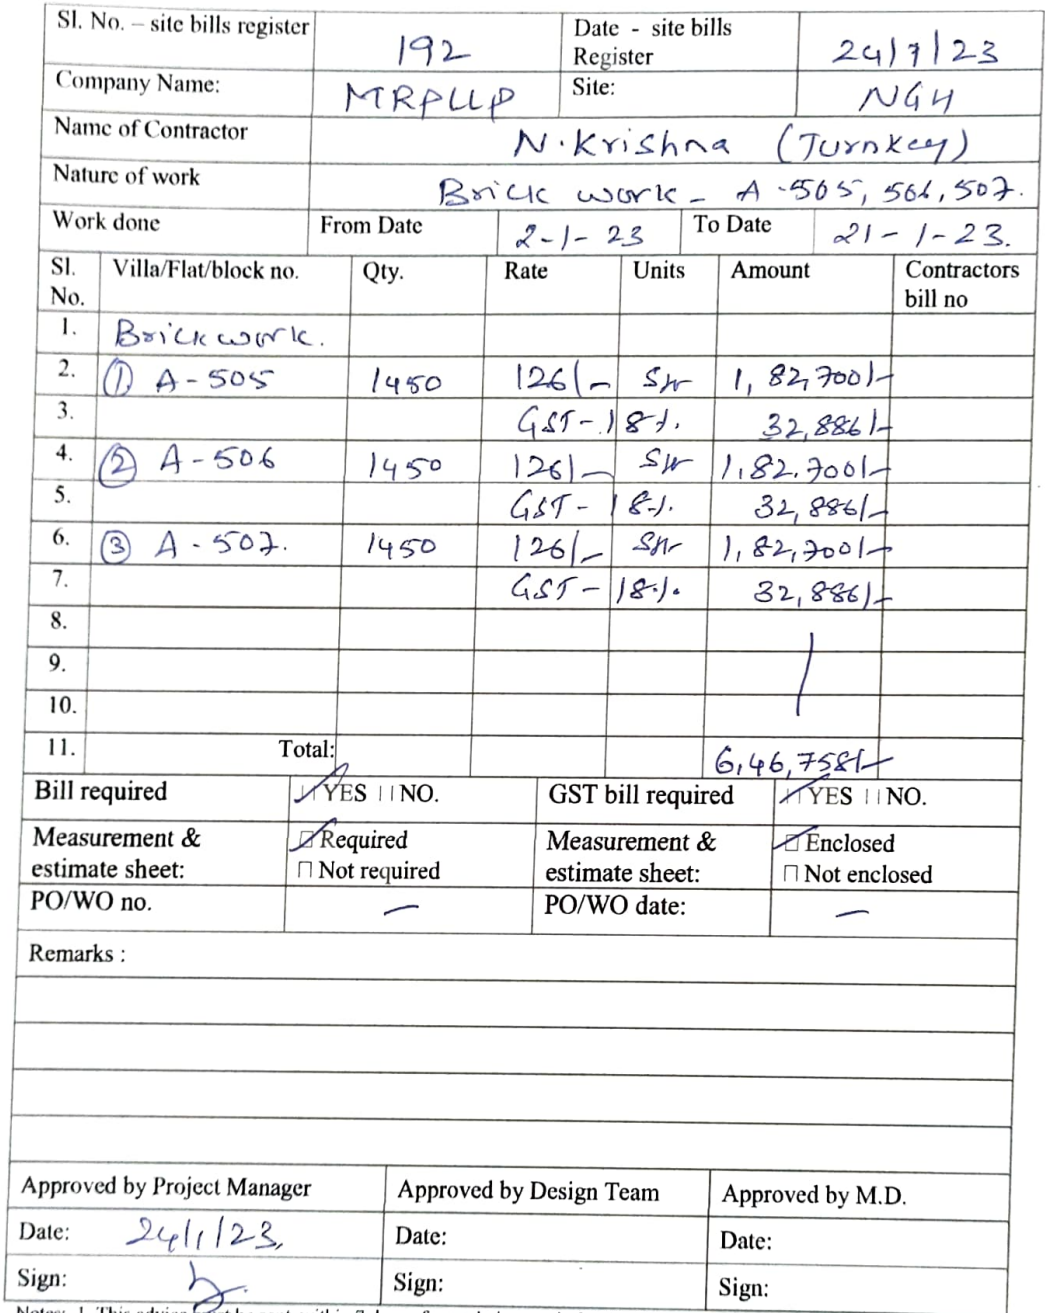 Sl. No. – site bills register 192 Date - site bills Register 24/7/23
Company Name: MRPLLP Site: NGH
Name of Contractor N. Krishna (Turnkey)
Nature of work Brick work - A-505, 506, 507.
Work done From Date 2-1-23 To Date 21-1-23.
Sl. No. Villa/Flat/block no. Qty. Rate Units Amount Contractors bill no
1. Brick work.
2. (1) A-505 1450 126/- 1,82,700/-
3. GST - 18%. 32,886/-
4. (2) A-506 1450 126/- 1,82,700/-
5. GST - 18%. 32,886/-
6. (3) A-507. 1450 126/- 1,82,700/-
7. GST - 18%. 32,886/-
8.
9.
10.
11. Total: 6,46,758/-
Bill required YES NO. GST bill required YES NO.
Measurement & estimate sheet: Required Measurement & estimate sheet: Enclosed
Not required Not enclosed
PO/WO no. - PO/WO date: -
Remarks :
Approved by Project Manager Approved by Design Team Approved by M.D.
Date: 24/1/23, Date: Date:
Sign: Sign: Sign: